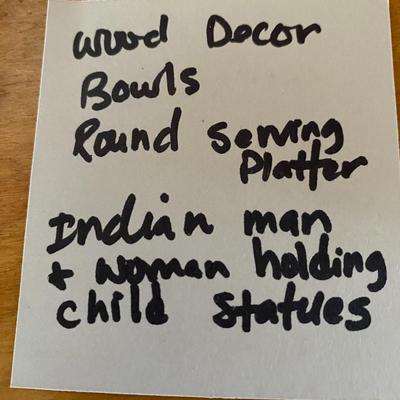 Wood Decor
Bowls
Round Serving
Platter
Indian man
+ woman holding
child Statues